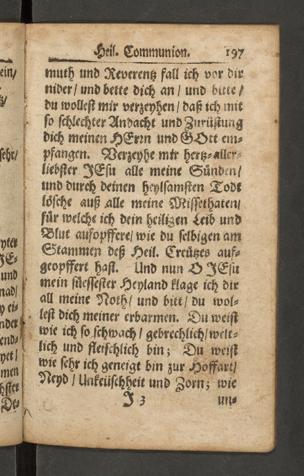 Heil. Communion. 197
muth und Reverentz fall ich vor dir
nider/ und bette dich an/ und bitte/
du wollest mir verzeyhen/ daß ich mit
so schlechter Andacht und Zurüstung
dich meinen HErrn und GOtt em-
pfangen. Verzeyhe mir hertz-aller-
liebster JEsu alle meine Sünden/
und durch deinen heylsamsten Todt
lösche auß alle meine Missethaten/
für welche ich dein heiligen Leib und
Blut auffopffere/ wie du selbigen am
Stammen deß Heil. Creützes auf-
geopffert hast. Und nun O JEsu
mein süessester Heyland klage ich dir
all meine Noth/ und bitt/ du wol-
lest dich meiner erbarmen. Du weist
wie ich so schwach/ gebrechlich/ welt-
lich und fleischlich bin; Du weist
wie sehr ich geneigt bin zur Hoffart/
Neyd/ Unkeüschheit und Zorn; wie
J 3 un-